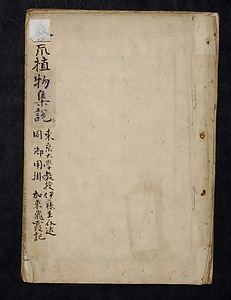 植物集説
東京大学教授 伊藤圭介述
同 御用掛 加来飛霞記